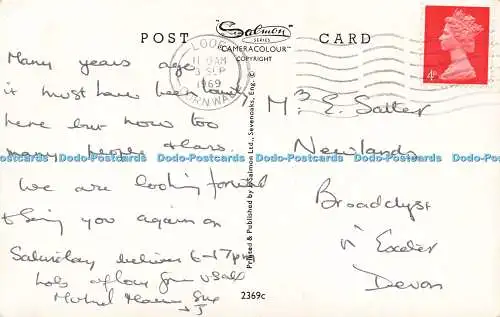 POST
Salmon
SERIES
"CAMERACOLOUR"
COPYRIGHT
CARD
LOOE
CORNWALL
SEP
1969
4D
Many years ago
it must have been lovely
here but now too
many people & cars.
We are looking forward
to seeing you again on
Saturday between 6-7pm
lots of love from us all
Printed & Published by J. Salmon Ltd., Sevenoaks, Eng. ©
2369c
E. Salter
Newlands
Broadclyst
Nr Exeter
Devon
Dodo-Postcards Dodo-Postcards Dodo-Postcards Dodo-Postcards Dodo-Postcards